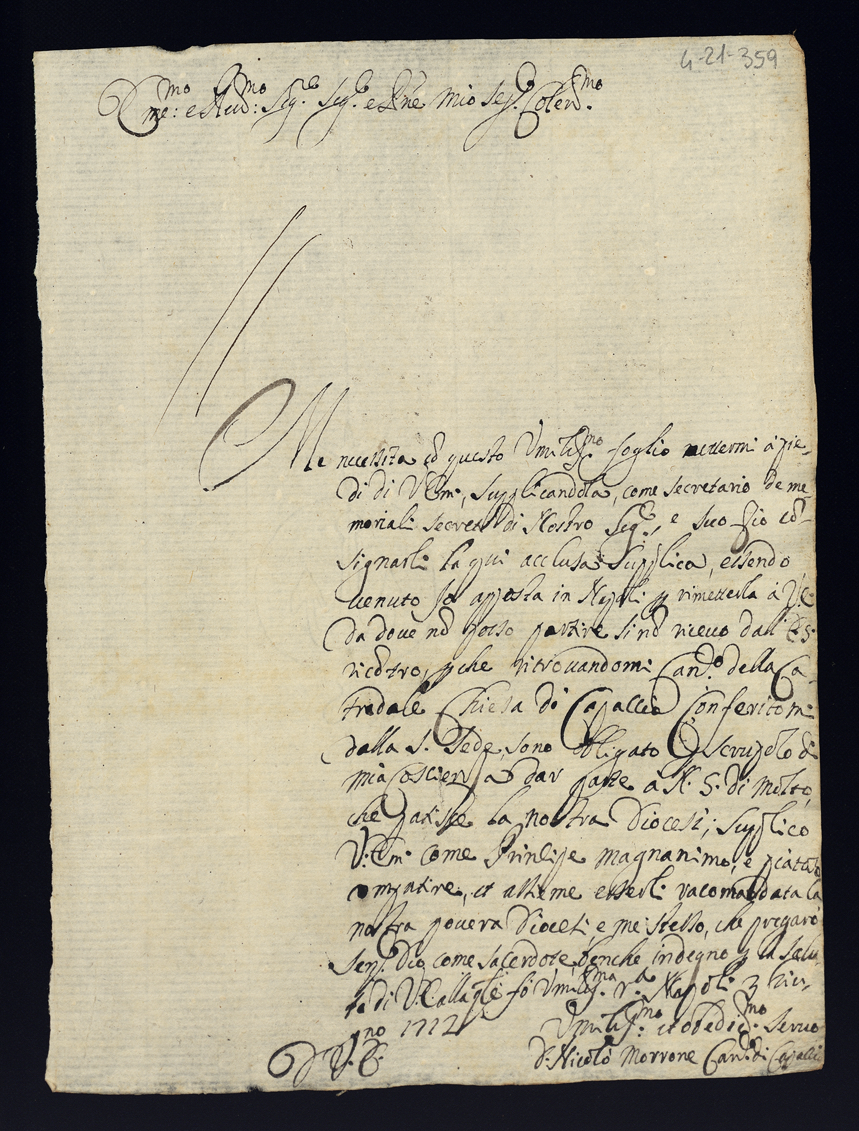 4-21-359
Em:mo e Rev:mo Sig.r Sig.r e Pne mio Sig.r Colen.mo
Me necessita cō questo Vmiliss.mo foglio mettermi à pie-
di di V. Em., supplicandola, come secretario de me-
moriali secreti di Nostro Sig.r, e suo Zio cō-
signarli la qui acclusa supplica, essendo
venuto fo apposta in Napoli p rimetterla à V. E.
da dove nō posso partire si nō ricevo dall' E. S.
ricōtro, pche ritrovandomi Can.o della Ca-
tredale Chiesa di Capaccio Conferitomi
dalla S. Sede, sono obligato p scrupolo di
mia coscienza dar parte a N. S. di molto,
che patisce la nostra Diocesi; supplico
V. Em. come Principe magnanimo, e piatoso
compatire, et assieme esserli racomandata la
nostra povera Diocesi e me stesso, che pregarò
sem. Dio, come sacerdote, benche indegno p la salu-
te di V. E. alla qle fò Vmiliss.ma r.a Napoli 3 Giu-
gno 1712
D V. E.
Vmiliss.mo et obedie.mo Servo
D. Nicolò Morrone Can.o di Capacci